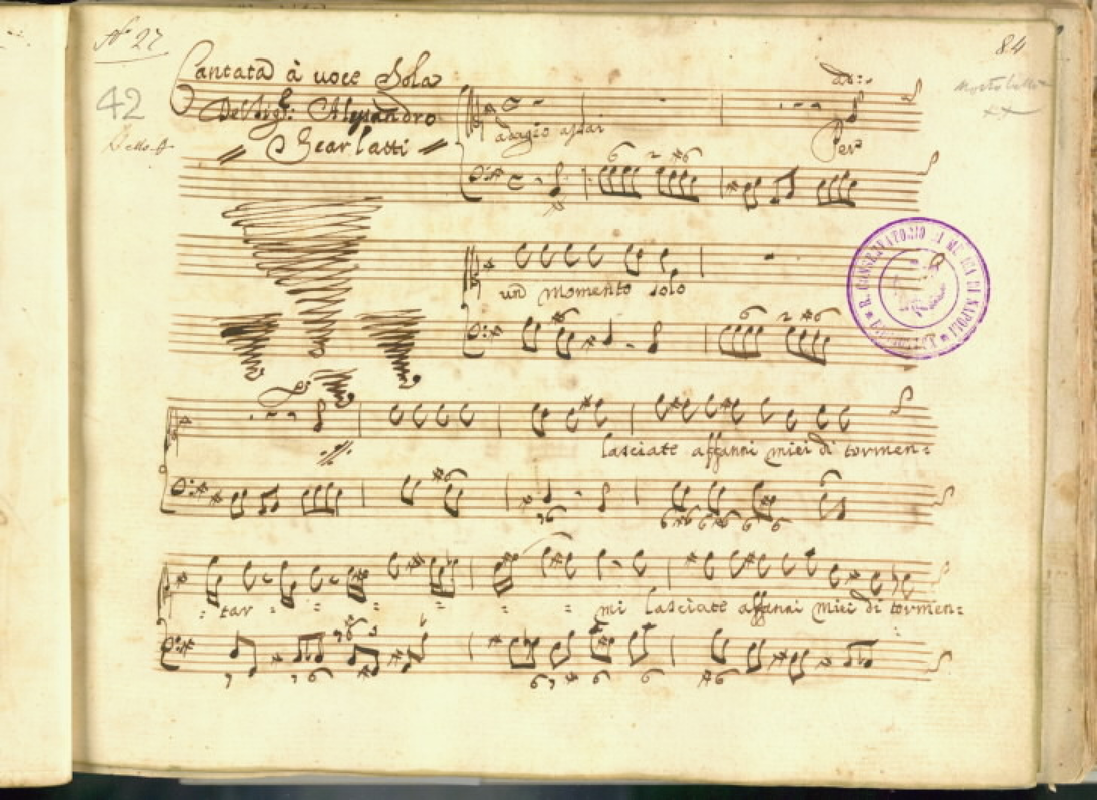 N° 27
84
Cantata à uoce Sola
42
Del Sig.r Alessandro
Scarlatti
ar:
adagio assai
Per
6 2 #6
un momento solo
6 2 #6
R. CONSERVATORIO DI MUSICA DI NAPOLI
lasciate affanni miei di tormen=
= tar - = - = - = mi lasciate affanni miei di tormen=